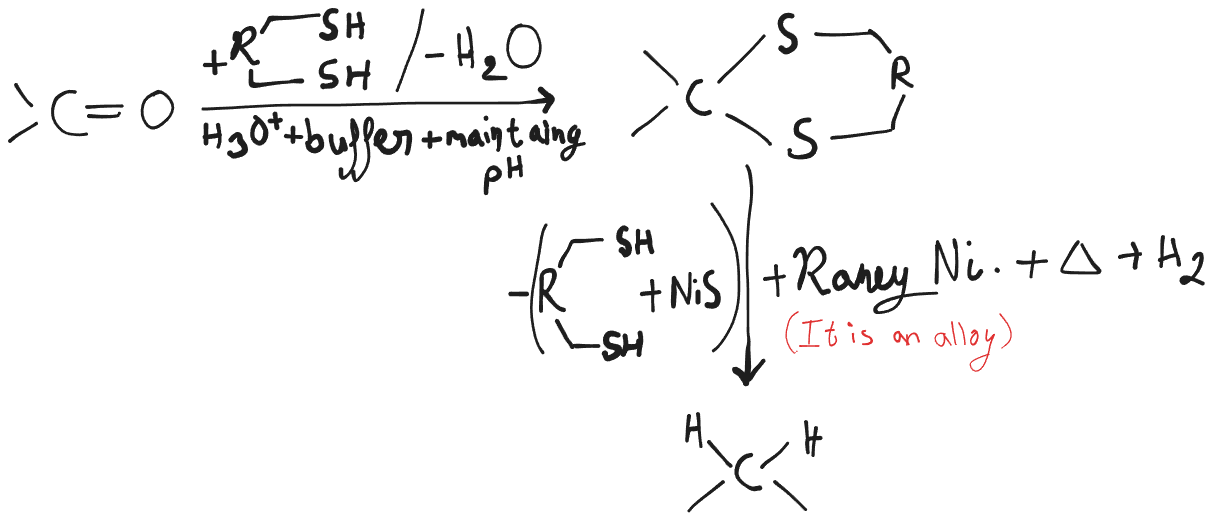 C = O
+ R SH SH / - H2O
H3O+ + buffer + maintaing
pH
C S S R
- ( R SH SH + NiS )
+ Raney Ni. + Δ + H2
(It is an alloy)
H C H